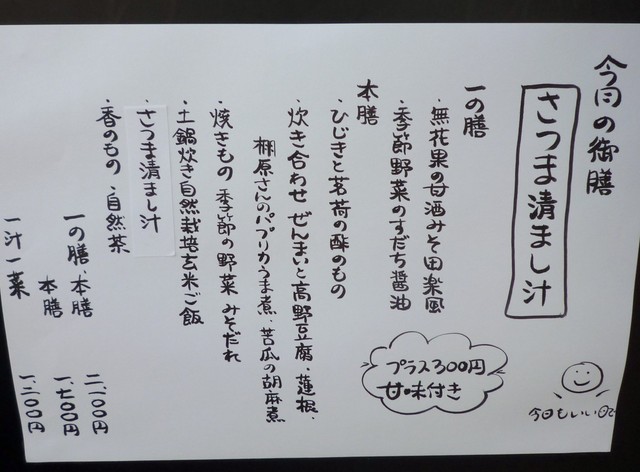 今日の御膳
さつま清まし汁
一の膳
・無花果の甘酒みそ田楽風
・季節野菜のすだち醤油
本膳
・ひじきと茗荷の酢のもの
・炊き合わせ ぜんまいと高野豆腐・蓮根・
棚原さんのパプリカうま煮・苦瓜の胡麻煮
・焼きもの 季節の野菜 みそだれ
・土鍋炊き自然栽培玄米ご飯
・さつま清まし汁
・香のもの ・自然茶
一の膳・本膳 二、一〇〇円
本膳 一、七〇〇円
一汁一菜 一、二〇〇円
プラス300円
甘味付き
今日もいい日で